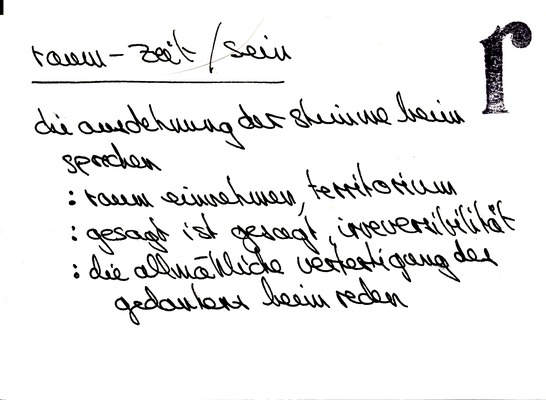 raum-zeit/sein
r
die ausdehnung der stimme beim
sprechen
: raum einnehmen, territorium
: gesagt ist gesagt, irreversibilität
: die allmähliche verfertigung der
gedanken beim reden